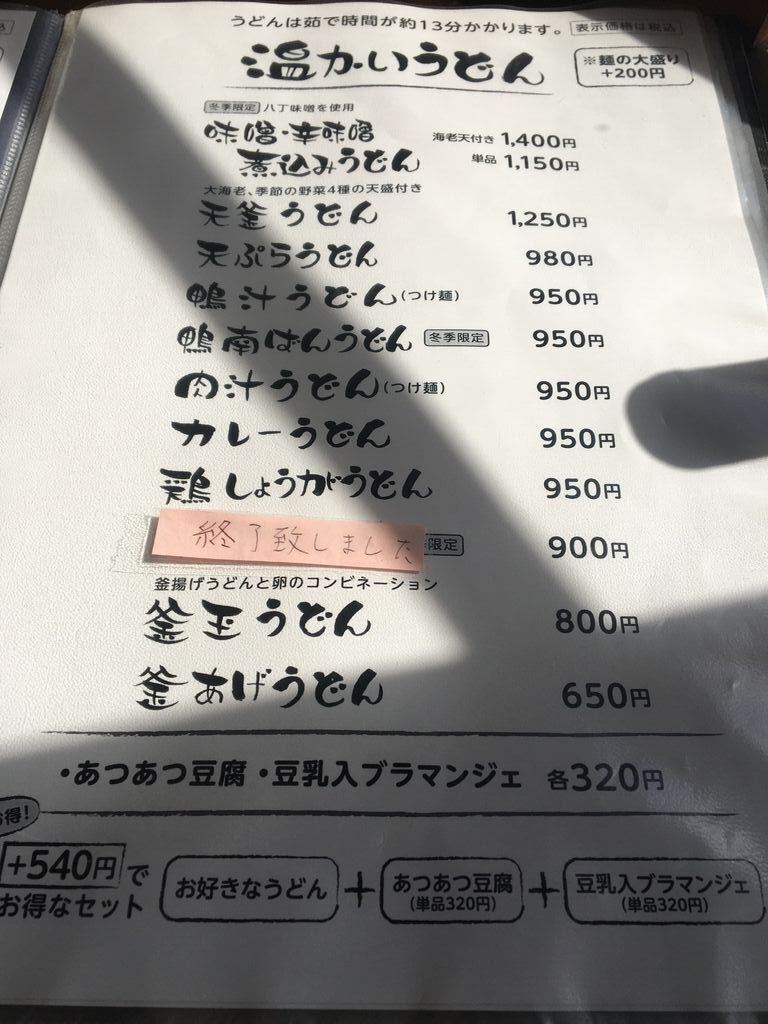 うどんは茹で時間が約13分かかります。 表示価格は税込
温かいうどん
※麺の大盛り
+200円
冬季限定 八丁味噌を使用
味噌・辛味噌 海老天付き 1,400円
煮込みうどん 単品 1,150円
大海老、季節の野菜4種の天盛付き
天釜うどん 1,250円
天ぷらうどん 980円
鴨汁うどん(つけ麺) 950円
鴨南ばんうどん 冬季限定 950円
肉汁うどん(つけ麺) 950円
カレーうどん 950円
鶏しょうがうどん 950円
終了致しました 限定 900円
釜揚げうどんと卵のコンビネーション
釜玉うどん 800円
釜あげうどん 650円
・あつあつ豆腐・豆乳入ブラマンジェ 各320円
得!
+540円で
お得なセット
お好きなうどん + あつあつ豆腐 + 豆乳入ブラマンジェ
(単品320円) (単品320円)